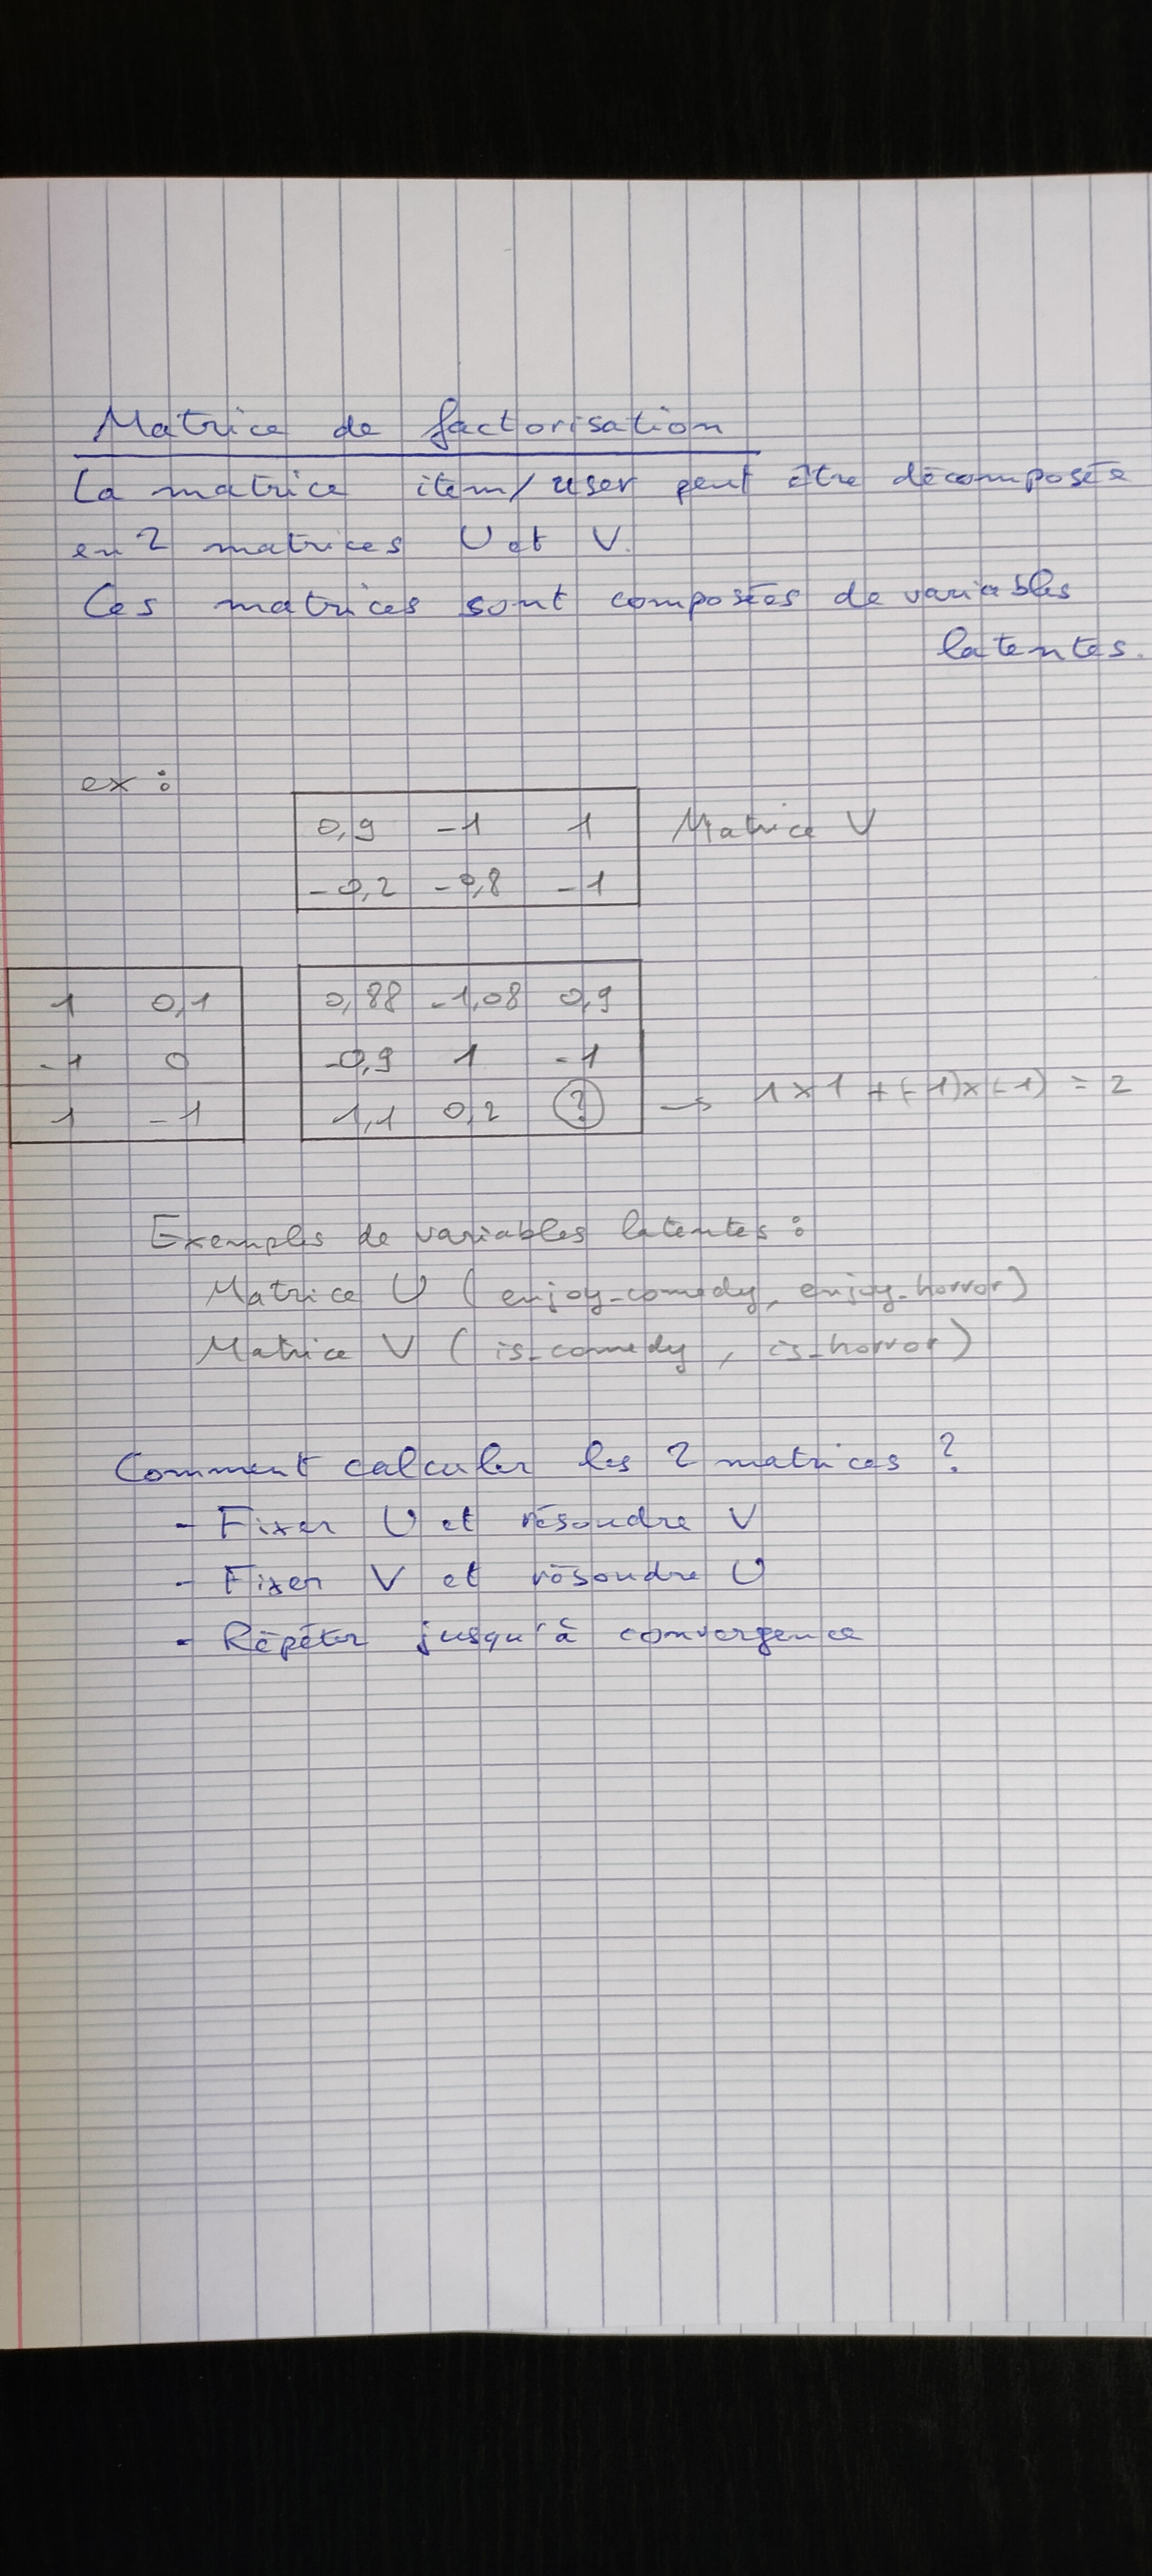 Matrice de factorisation
La matrice item/user peut être décomposée
en 2 matrices U et V.
Ces matrices sont composées de variables
latentes.
ex :
0,9 -1 1 Matrice V
-0,2 -0,8 -1
1 0,1 0,88 -1,08 0,9
-1 0 -0,9 1 -1
1 -1 1,1 0,2 ? → 1x1 + (-1)x(-1) = 2
Exemples de variables latentes :
Matrice U (enjoy-comedy, enjoy-horror)
Matrice V (is-comedy, is-horror)
Comment calculer les 2 matrices ?
- Fixer U et résoudre V
- Fixer V et résoudre U
- Répéter jusqu'à convergence